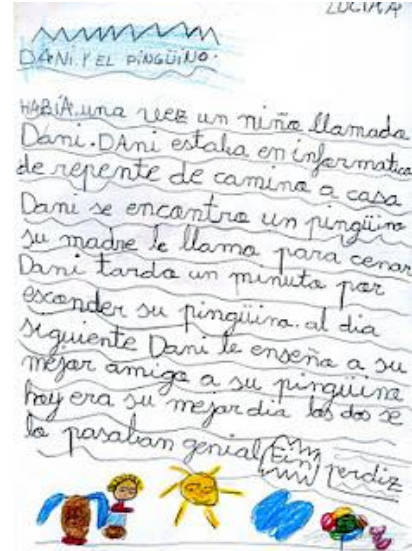 LUCIA A
DANI Y EL PINGÜINO.
HABÍA una vez un niño llamado
Dani. DAni estaba en informatica
de repente de camino a casa
Dani se encontro un pingüino
su madre le llamo para cenar
Dani tardo un minuto por
esconder su pingüino. al dia
siguiente Dani le enseño a su
mejor amigo a su pingüino
hoy era su mejor dia los dos se
lo pasaban genial Fin perdiz